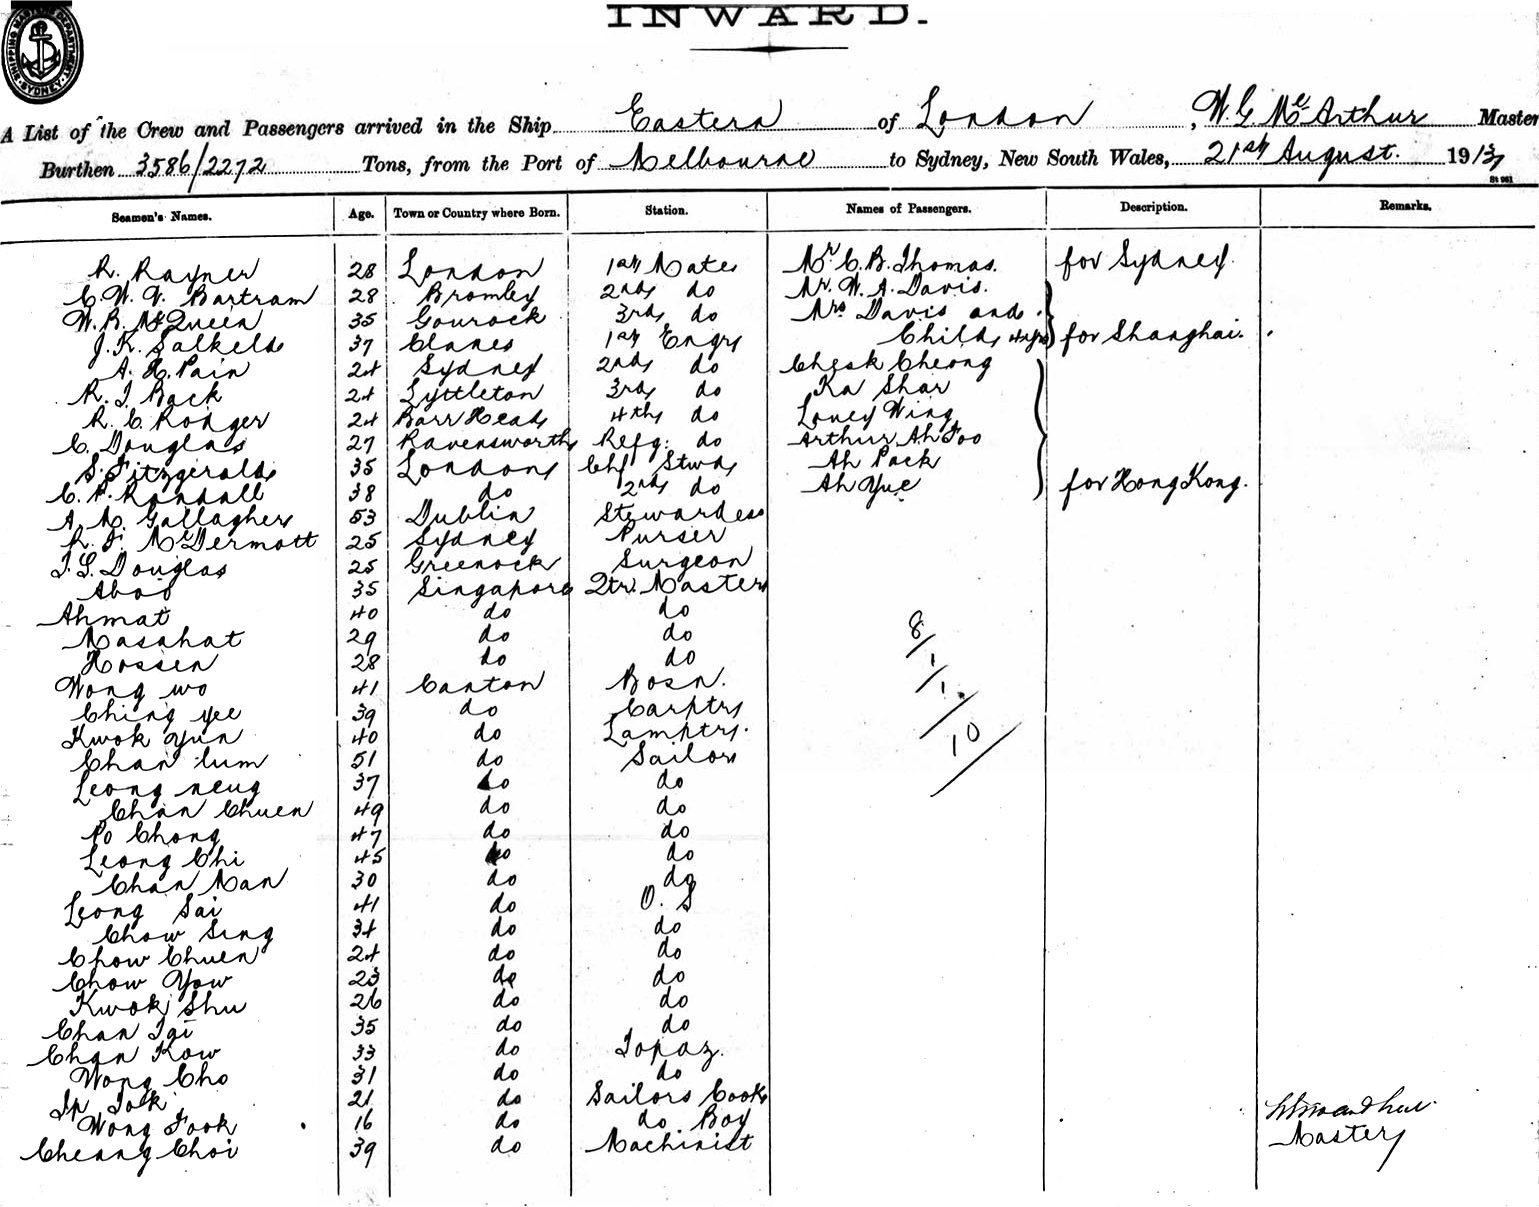 SHIPPING MASTERS DEPARTMENT SYDNEY
INWARD.
A List of the Crew and Passengers arrived in the Ship Eastern of London, W. G. McArthur Master
Burthen 3586/2272 Tons, from the Port of Melbourne to Sydney, New South Wales, 21st August. 1913
St 961
Seamen's Names. Age. Town or Country where Born. Station. Names of Passengers. Description. Remarks.
R. Rayner 28 London 1st Mate Mr C. B. Thomas. for Sydney
C. W. V. Bartram 28 Bromley 2nd do Mr. W. A. Davis.
W. R. McQueen 35 Gourock 3rd do Mrs Davis and
J. K. Salkeld 37 Clanes 1st Engr Child 4yrs for Shanghai.
A. H. Pain 24 Sydney 2nd do Cheok Cheong
R. J. Back 24 Lyttleton 3rd do Ka Shar
R. C. Rodger 24 Barr Head 4th do Loney Wing
C. Douglas 27 Ravensworth Refg: do Arthur Ah Foo
S. Fitzgerald 35 London Chf Stwd Ah Pack
C. P. Randall 38 do 2nd do Ah Yue for Hong Kong.
A. M. Gallagher 53 Dublin Stewardess
R. F. McDermott 25 Sydney Purser
J. S. Douglas 25 Greenock Surgeon
Abod 35 Singapore Qtr. Master
Ahmat 40 do do
Masahat 29 do do 8/
Hossen 28 do do 1/
Wong wo 41 Canton Bosn. 1/
Ching yee 39 do Carptr
Kwok yun 40 do Lamptr. 10/
Chan lum 51 do Sailor
Leong neug 37 do do
Chan Chuen 49 do do
Po Chong 47 do do
Leong Chi 45 do do
Chan Man 30 do do
Leong Sai 41 do O. S
Chow Sing 34 do do
Chow Chuen 24 do do
Chow Yow 23 do do
Kwok Shu 26 do do
Chan Tai 35 do do
Chan Kow 33 do Topaz.
Wong Cho 31 do do
Ip Tok 21 do Sailors Cook
Wong Fook 16 do do. Boy
Cheang Choi 39 do Machinist Master